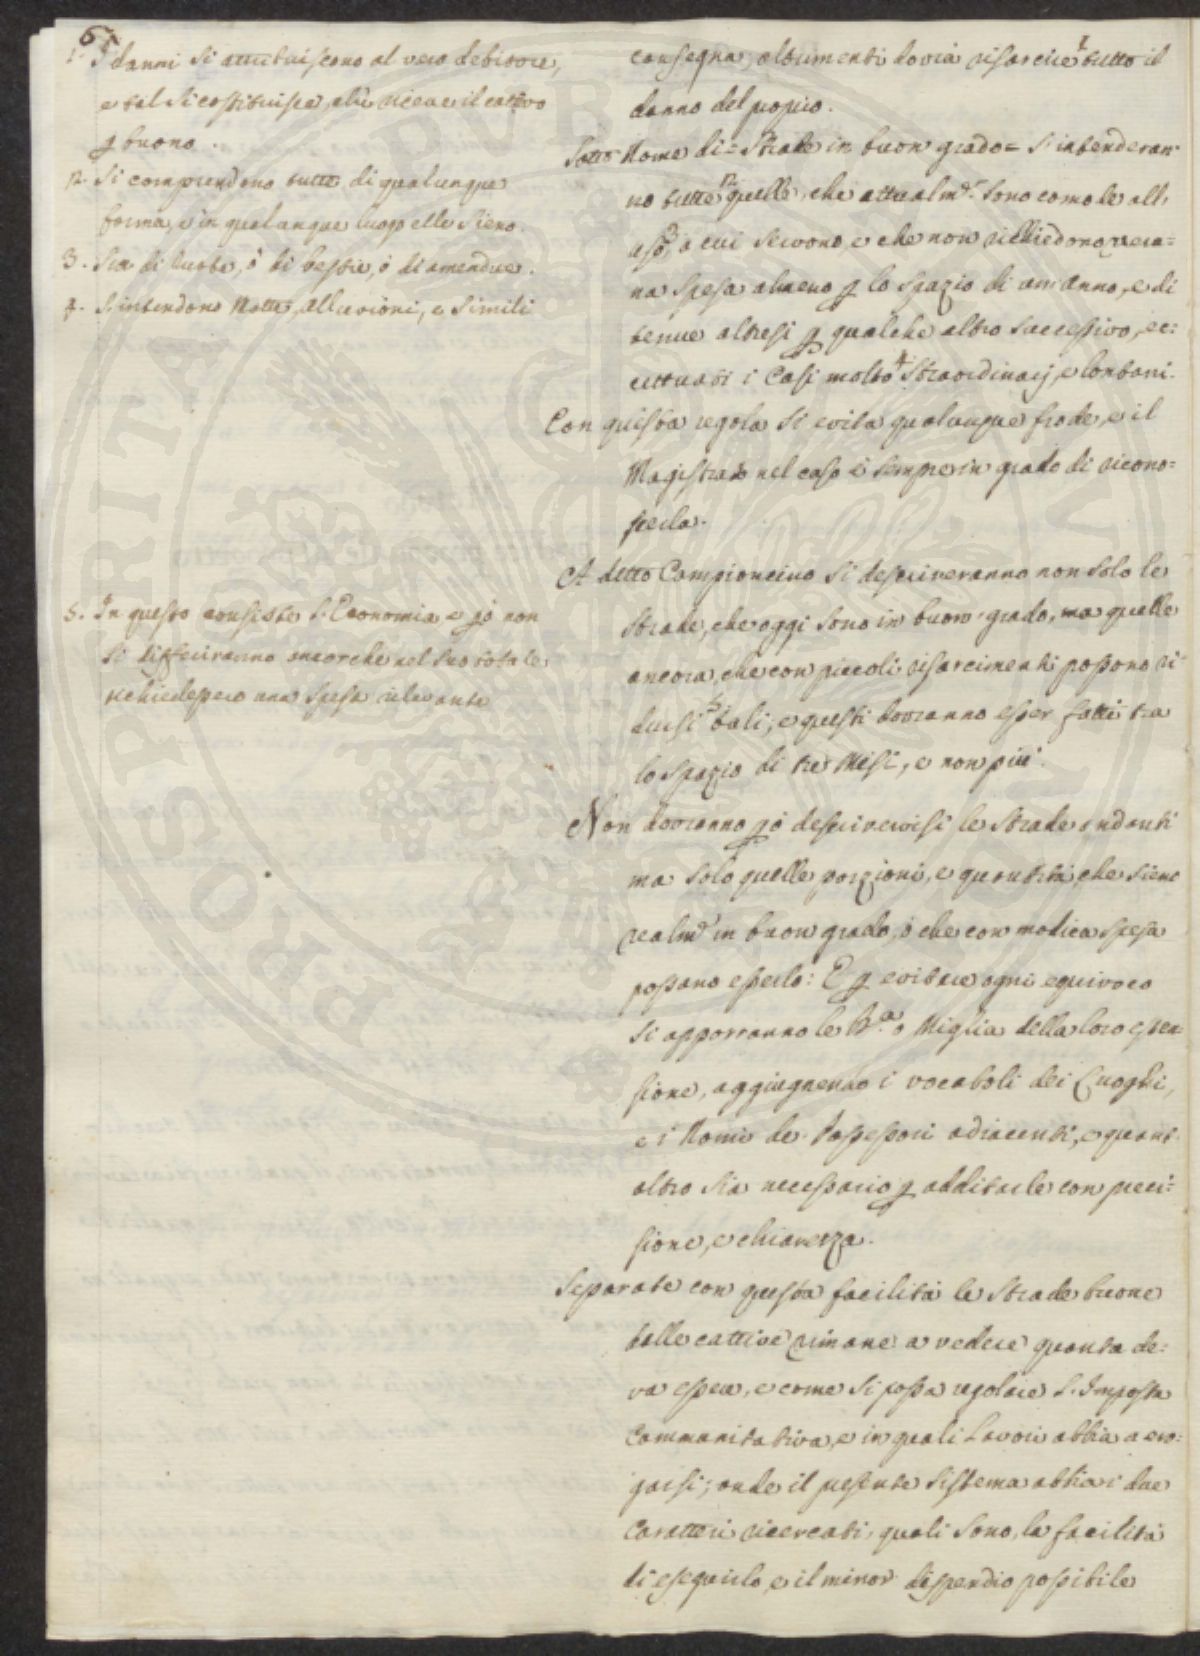 67
1. I danni si attribuiscono al vero debitore,
e tal si costituisce, chi riceve il cattivo
p buono.
2. Si comprendono tutte di qualunque
forma, e in qualunque luogo elle sieno.
3. Sia di ruote, ò di bestie, ò di amendue.
4. S'intendono Motte, alluvioni, e simili
5. In questo consiste l'Economia e pò non
si differiranno ancorche nel suo totale
richiedessero una spesa rilevante
consegna, altrimenti dovrà risarcire 1 tutto il
danno del proprio.
Sotto Nome di = Strade in buon grado = s'intenderan
no tutte 2 quelle, che attualmᵉ sono comode all'
uso 3, a cui servono, e che non richiedono veru=
na spesa almeno p lo spazio di un Anno, e di
tenue altresi p qualche altro successivo, ec=
cettuati i Casi molto 4 straordinarj, e lontani.
Con questa regola si evita qualunque frode, e il
Magistrato nel caso è sempre in grado di ricono=
scerla.
A detto Campioncino si descriveranno non solo le
strade, che oggi sono in buon grado, ma quelle
ancora, che con piccoli risarcimenti possono ri=
dursi 5 tali; e questi dovranno esser fatti tra
lo spazio di tre Mesi, e non più.
Non dovranno pò descrivervisi le strade andanti
ma solo quelle porzioni, e quantità che sieno
realmᵉ in buon grado, ò che con modica spesa
possano esserlo: E p evitare ogni equivoco
si apporranno le Bᵃ o Miglia della loro esten=
sione, aggiugnendo i vocaboli dei Luoghi,
e i Nomi de' Possessori adiacenti, e quant'
altro sia necessario p additarle con preci=
sione, e chiarezza.
Separate con questa facilità le strade buone
dalle cattive rimane a vedere quanta de=
va essere, e come si possa regolare l'Imposta
Communitativa, e in quali Lavori abbia a ero=
garsi; onde il presente sistema abbia i due
caratteri ricercati, quali sono, la facilità
di eseguirlo, e il minor dispendio possibile